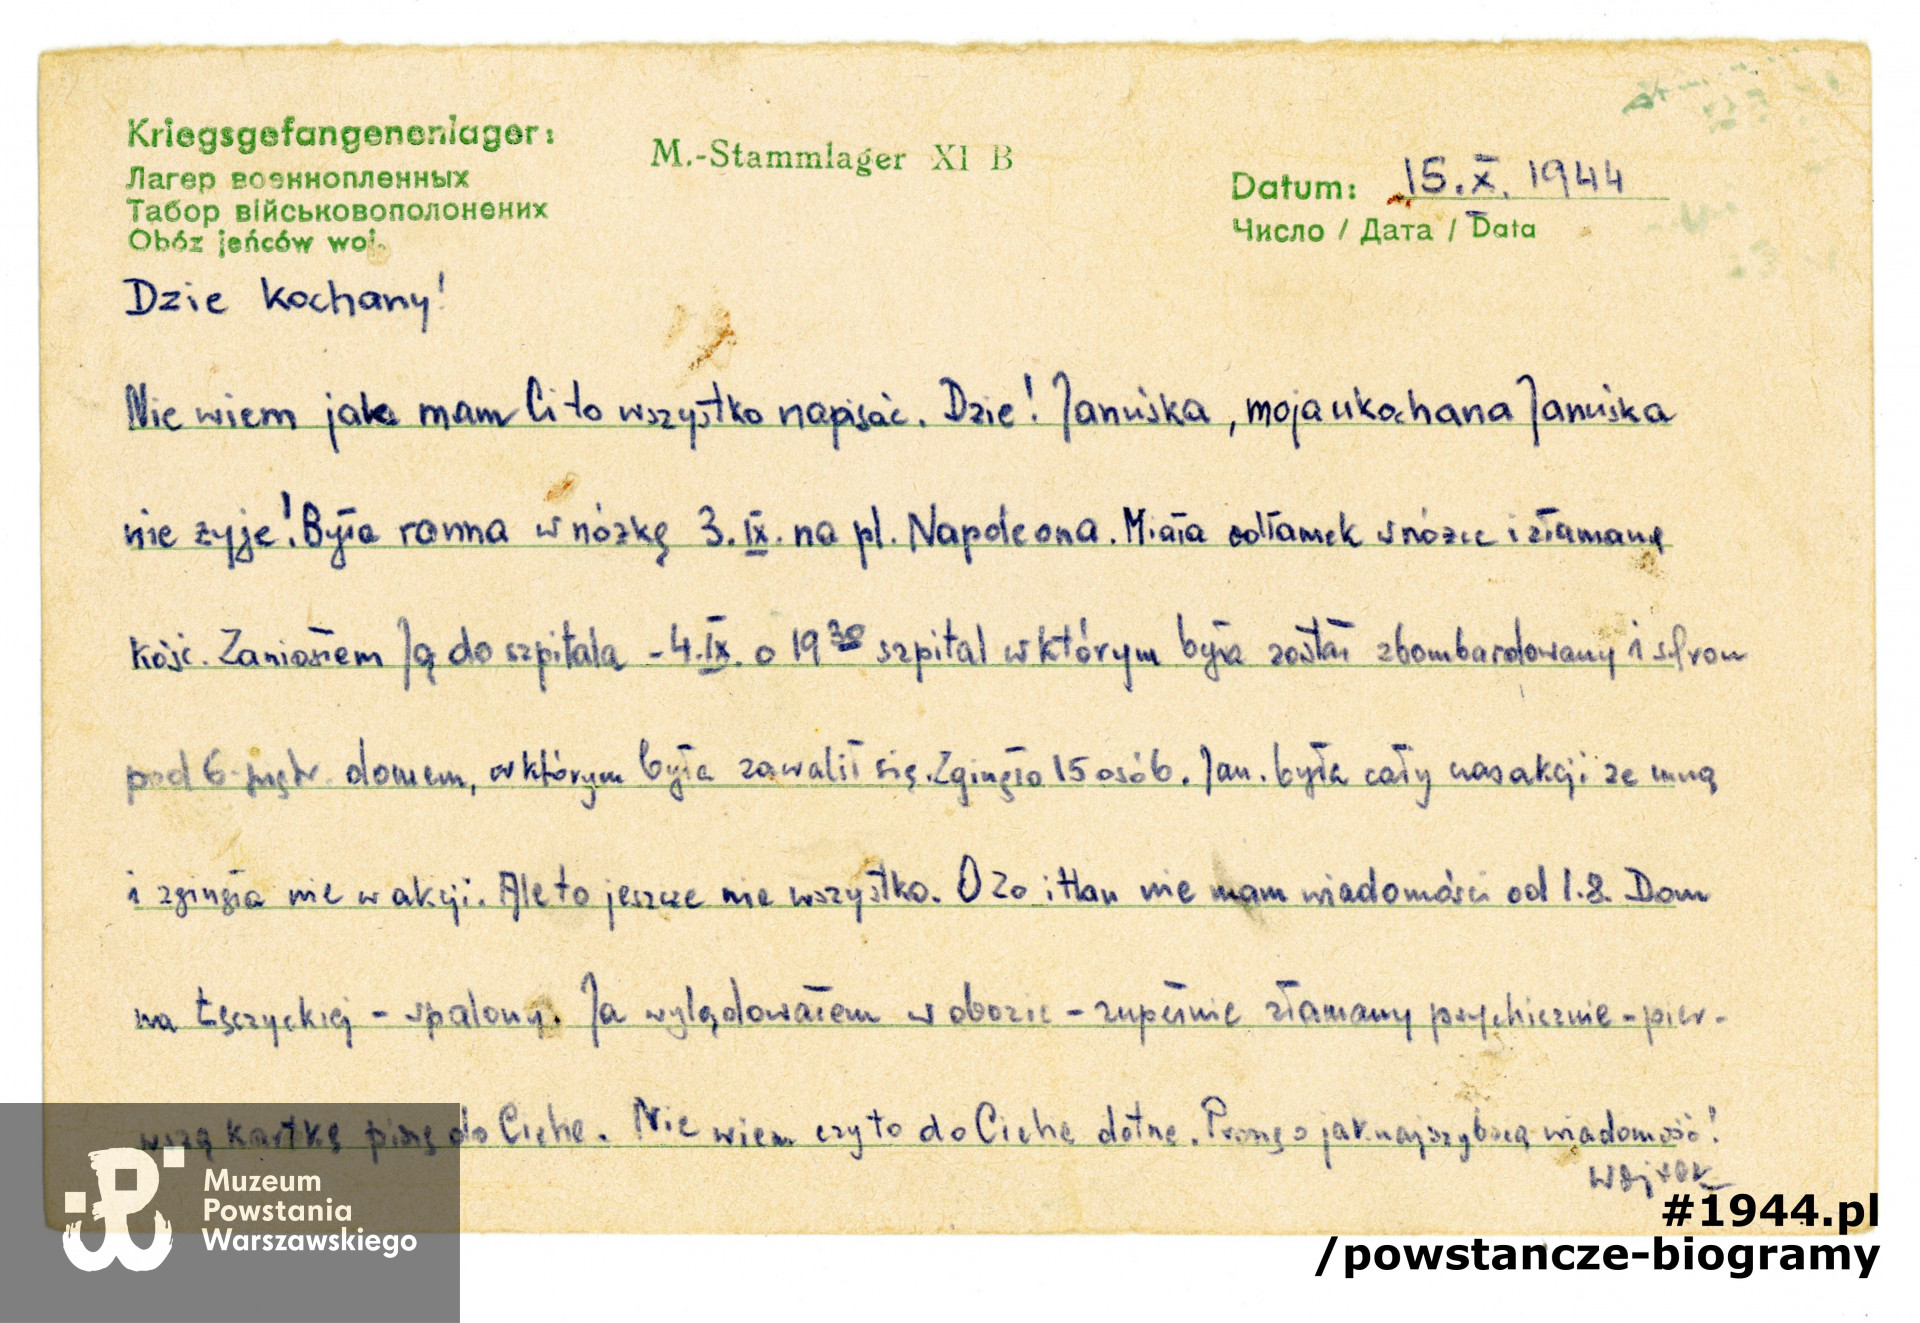 Kriegsgefangenenlager:
Лагер военнопленных
Табор військовополонених
Obóz jeńców woj.
M.-Stammlager XI B
Datum: 15.X. 1944
Число / Дата / Data
Dzie kochany!
Nie wiem jak mam Ci to wszystko napisać. Dzie! Januśka, moja ukochana Januśka
nie żyje! Była ranna w nóżkę 3.IX. na pl. Napoleona. Miała odłamek w nóżce i złamaną
kość. Zaniosłem Ją do szpitala - 4.IX. o 19 30 szpital w którym była został zbombardowany i schron
pod 6-piętr. domem, w którym była zawalił się. Zginęło 15 osób. Jan. była cały czas akcji ze mną
i zginęła nie w akcji. Ale to jeszcze nie wszystko. O Zo i Han nie mam wiadomości od 1.8. Dom
na Łęczyckiej - spalony. Ja wylądowałem w obozie - zupełnie złamany psychicznie - pier-
wszą kartkę piszę do Ciebie. Nie wiem czy to do Ciebie dotrze. Proszę o jaknajszybszą wiadomość!
Wojtek
Muzeum
Powstania
Warszawskiego
#1944.pl
/powstancze-biogramy